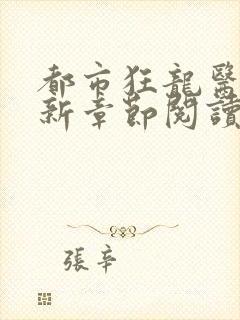 都市狂龍醫
新章節閱讀
張辛